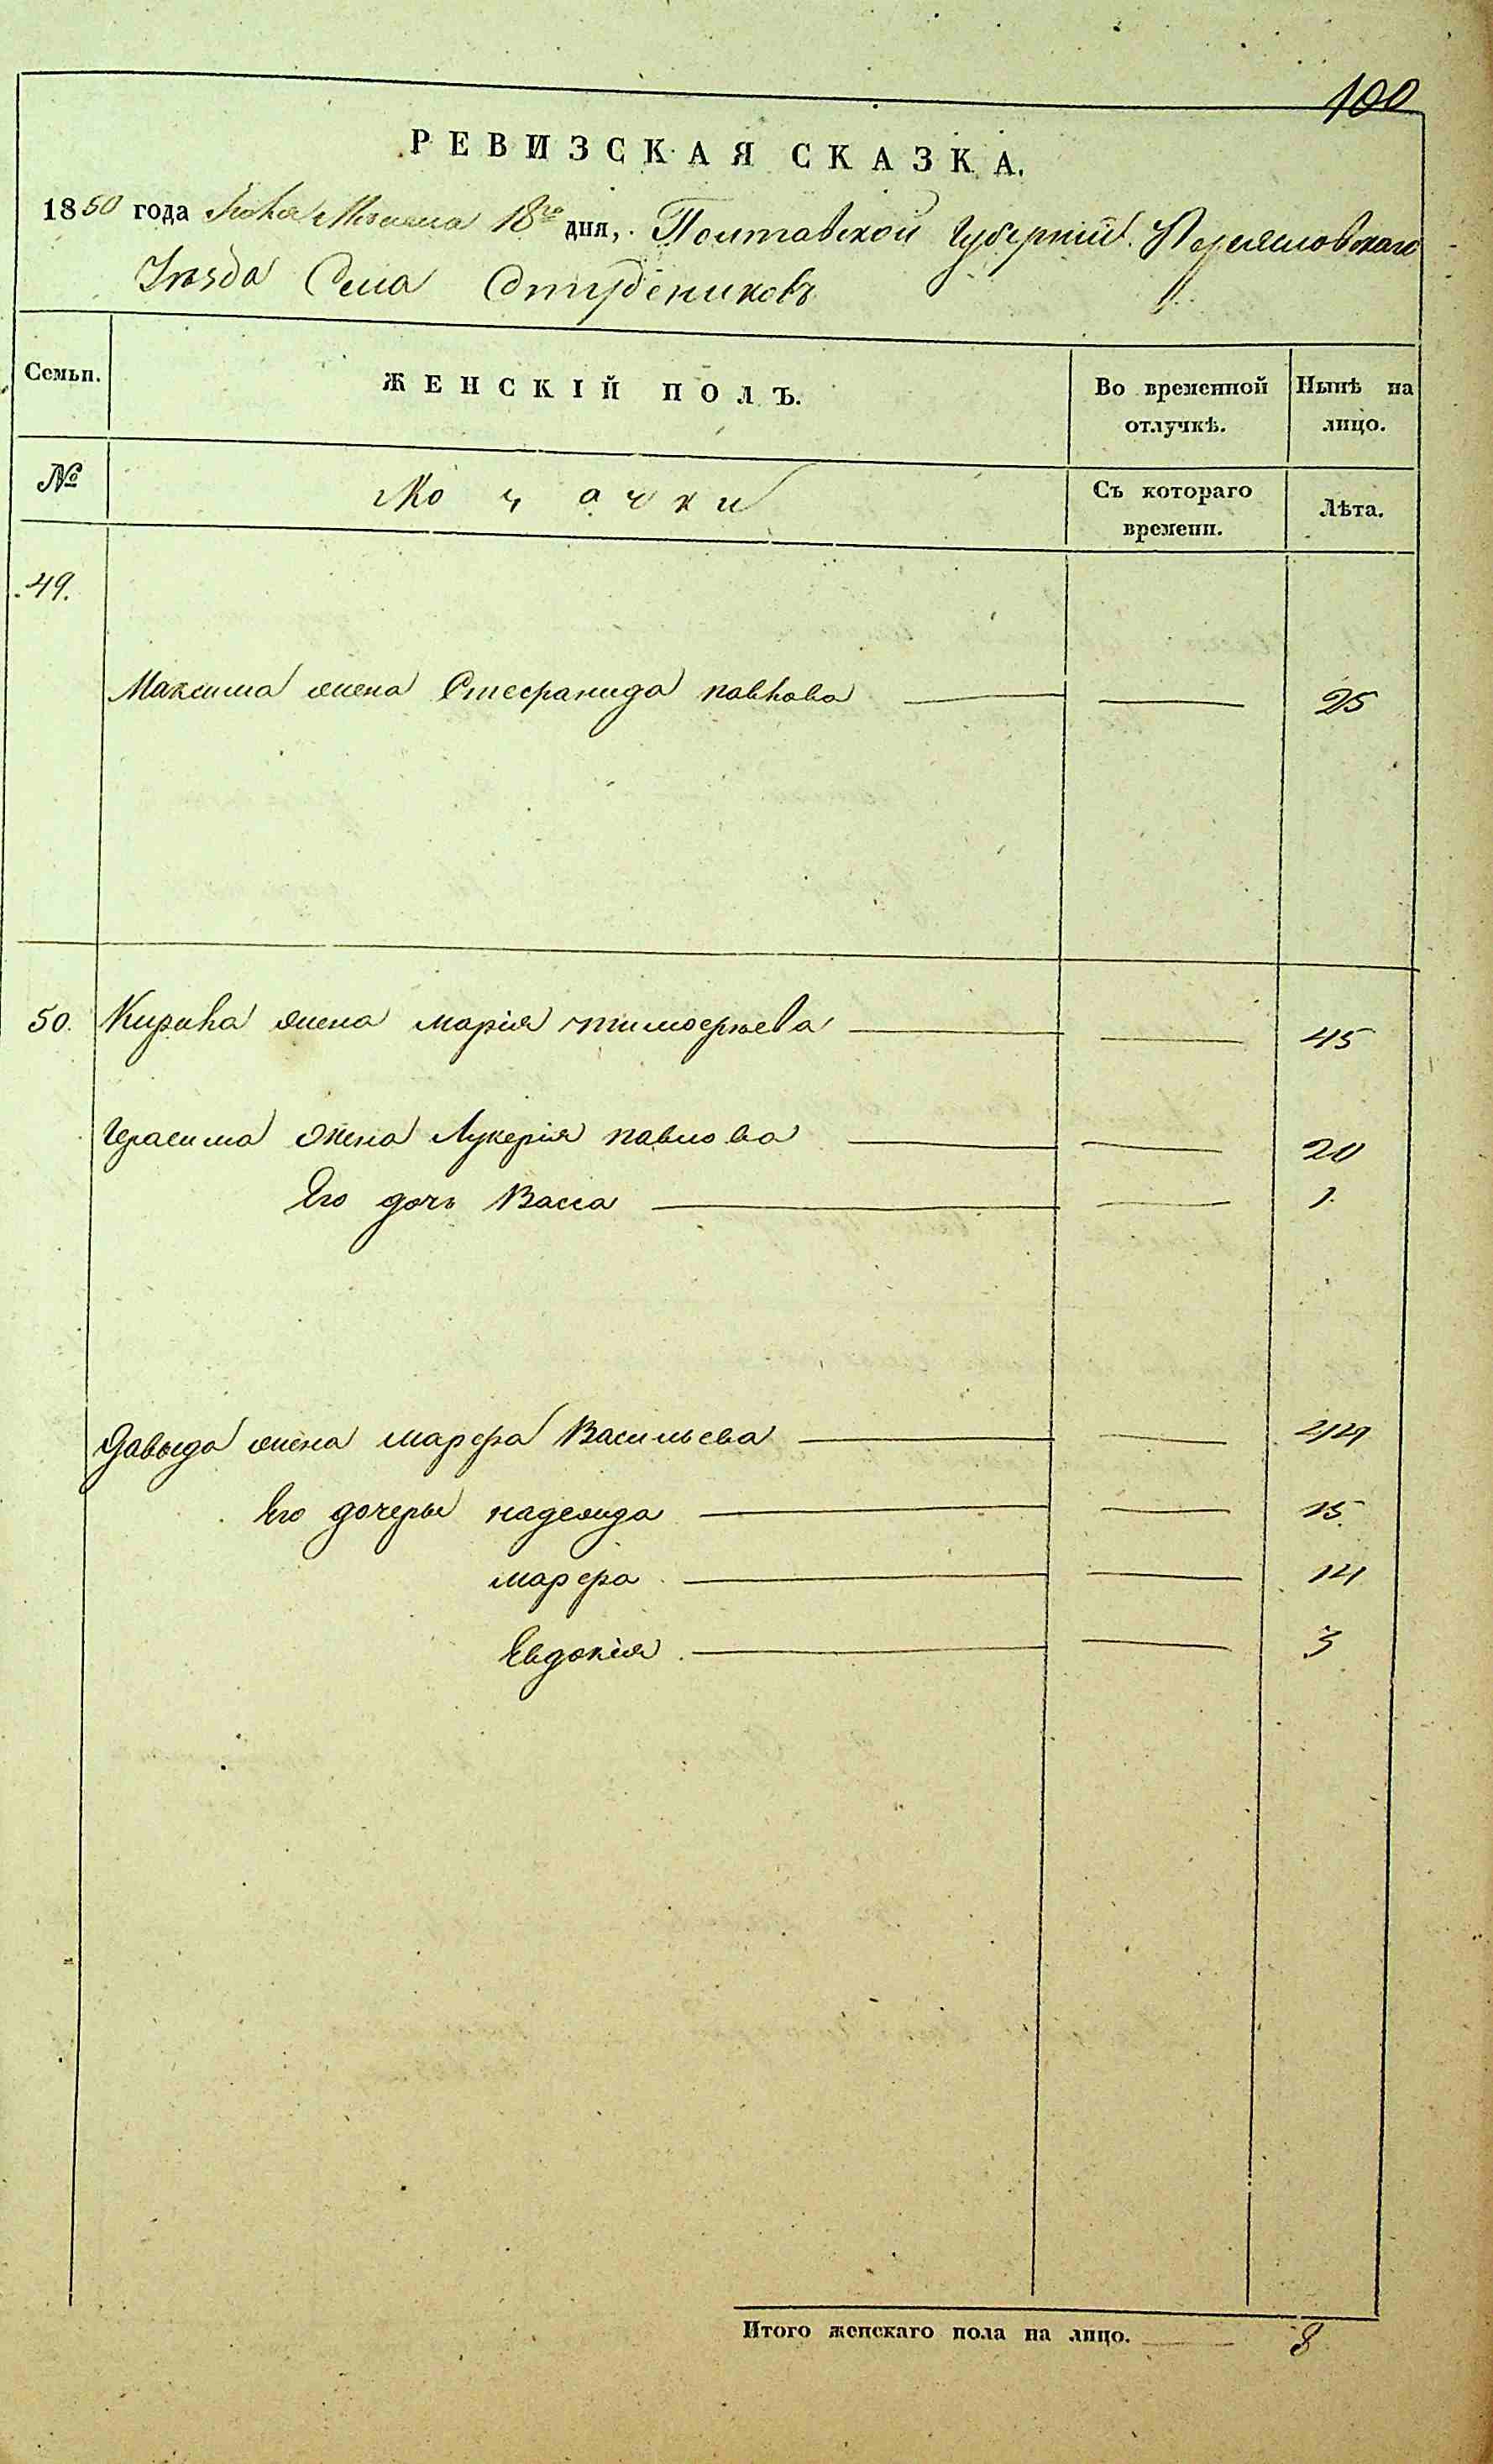 100
РЕВИЗСКАЯ СКАЗКА.
1850 года Мѣсяца 18го дня, Полтавской Губерніи Переяславскаго
Уѣзда Села Студениковъ
Семьи. ЖЕНСКІЙ ПОЛЪ. Во временной отлучкѣ. Нынѣ на лицо.
№ Козачки Съ котораго времени. Лѣта.
49.
Максима жена Стефанида 25
50. жена Марія тимофѣева 45
Герасима жена Лукерія павлова 20
Его дочь Васса 1
Давыда жена марфа Васильева 44
Его дочеры надежда 15
марфа 14
Евдокія 3
Итого женскаго пола на лицо. 8